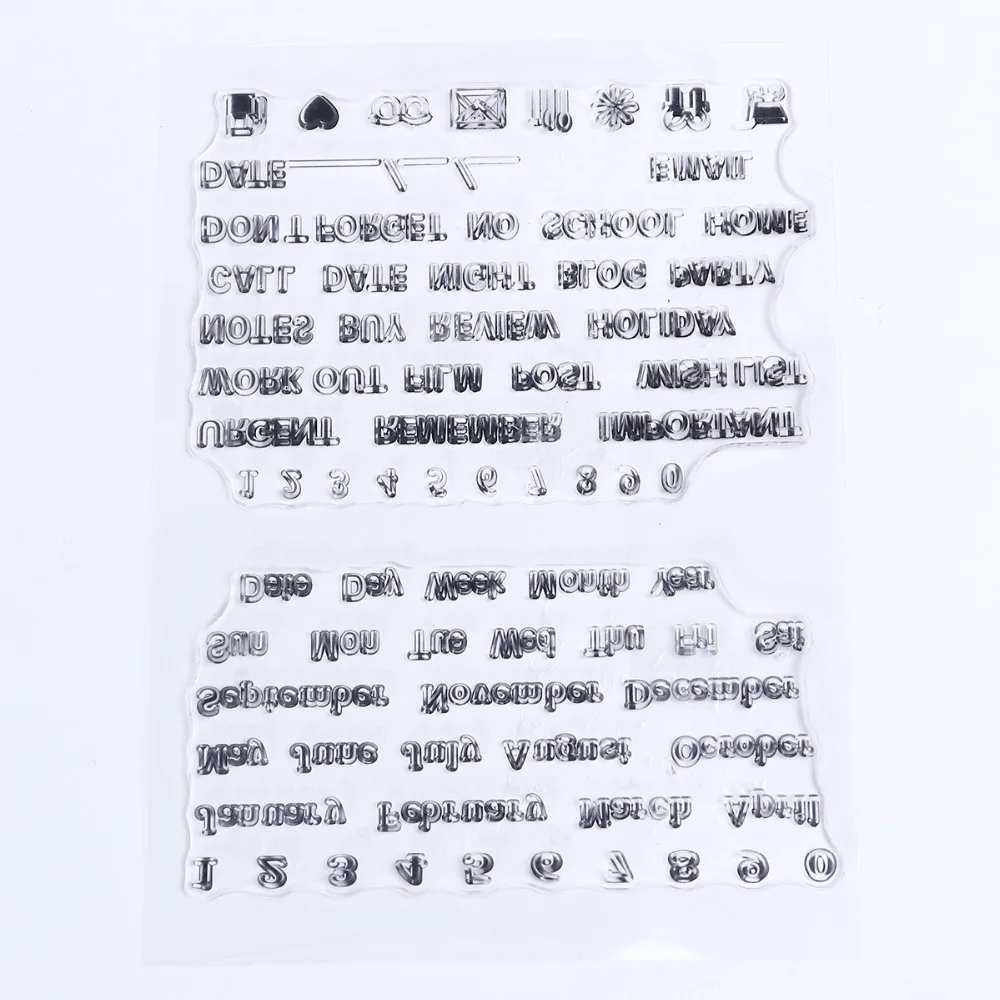 DATE EMAIL
DON'T FORGET NO SCHOOL HOME
CALL DATE NIGHT BLOG PARTY
NOTES BUY REVIEW HOLIDAY
WORK OUT FILM POST WISH LIST
URGENT REMEMBER IMPORTANT
1 2 3 4 5 6 7 8 9 0
Date Day Week Month Year
Sun Mon Tue Wed Thu Fri Sat
September November December
May June July August October
January February March April
1 2 3 4 5 6 7 8 9 0